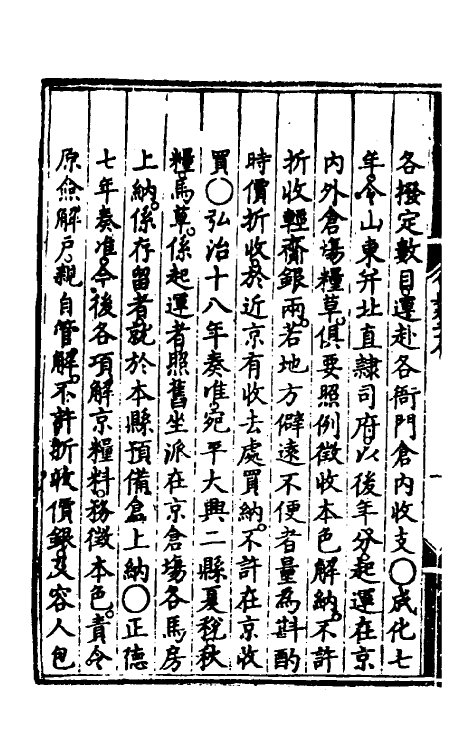 各撥定數目運赴各衙門倉内收支〇成化七
年令山東并北直隸司府以後年分起運在京
内外倉場糧草俱要照例徵收本色解納不許
折收輕齎銀兩若地方僻遠不便者量為斟酌
時價折收於近京有收去處買納不許在京收
買〇弘治十八年奏准宛平大興二縣夏稅秋
糧馬草係起運者照舊坐派在京倉場各馬房
上納係存留者就於本縣預備倉上納〇正德
七年奏准今後各項解京糧料務徵本色責令
原僉解戶親自管解不許折收價銀及容人包